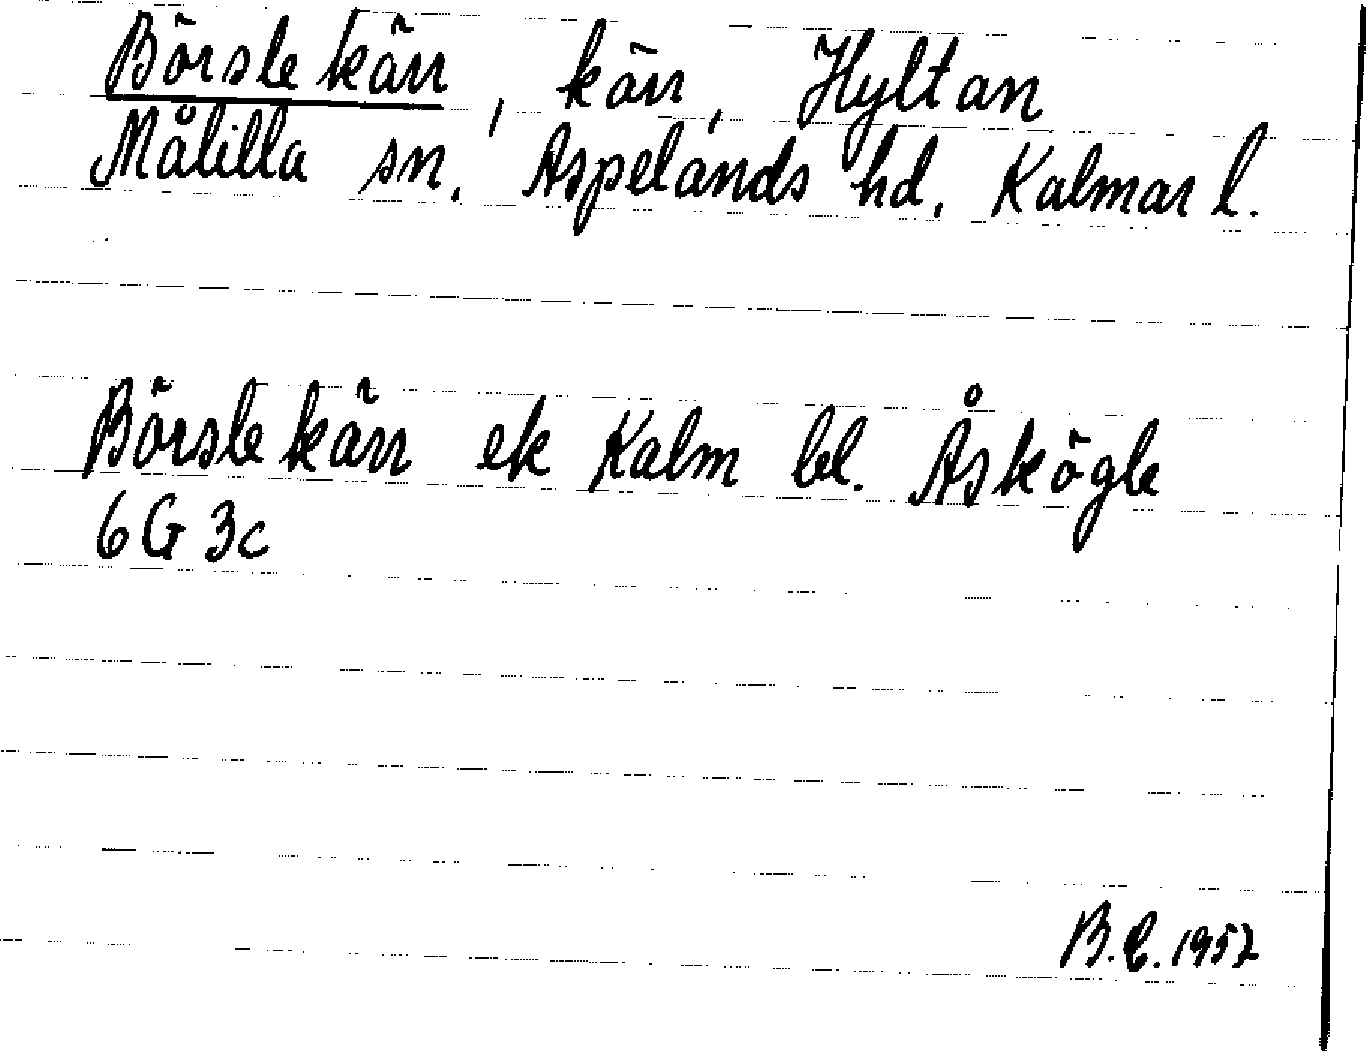 Börslekärr, kärr, Hyltan
Målilla sn. Aspelands hd. Kalmar l.
Börslekärr ek Kalm bl. Åskögle
6G 3c
B.E. 1957